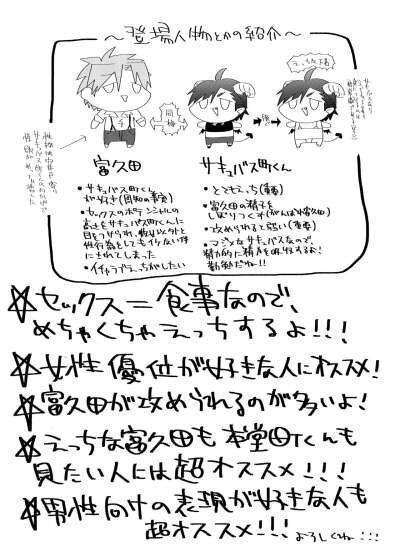 〜登場人物とかの紹介〜
えっちな下着
同棲
富久田
サキュバス町くん
・サキュバス町くん
が好き(周知の事実)
・セックスのポテンシャルの
高さをサキュバス町くんに
目をつけられ、彼以外と
性行為をしてもイけない体
にされてしまった
・イチャラブえっちがしたい
・とてもえっち(重要)
・富久田の精子を
しぼりつくす(がんばれ富久田)
・攻められると弱い(重要)
・マジメなサキュバスなので、
精力的に精子を吸収するよ!
勤勉だね!!
☆セックス=食事なので、
めちゃくちゃえっちするよ!!!
☆女性優位が好きな人にオススメ!
☆富久田が攻められるのが多いよ!
☆えっちな富久田も本堂町くんも
見たい人には超オススメ!!!
☆男性向けの表現が好きな人も
超オススメ!!! よろしくね…!!!